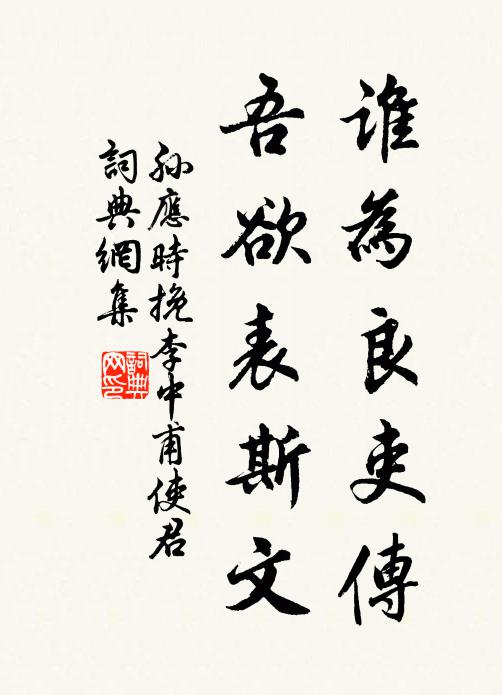 誰為良吏傳
吾欲表斯文
孫應時挽李中甫使君
詞典網集
詞典网印